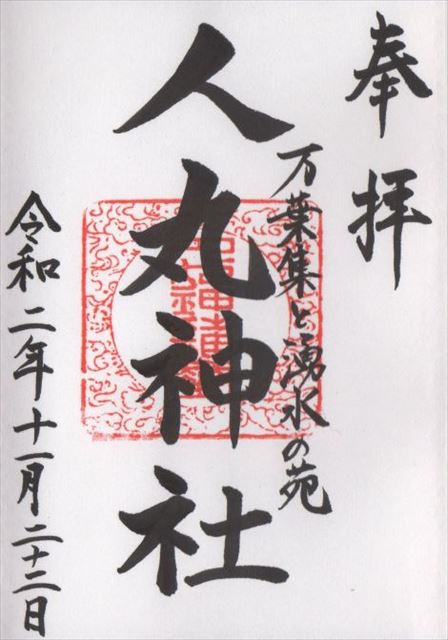 奉拝
万葉集と湧水の苑
人丸神社
令和二年十一月二十二日